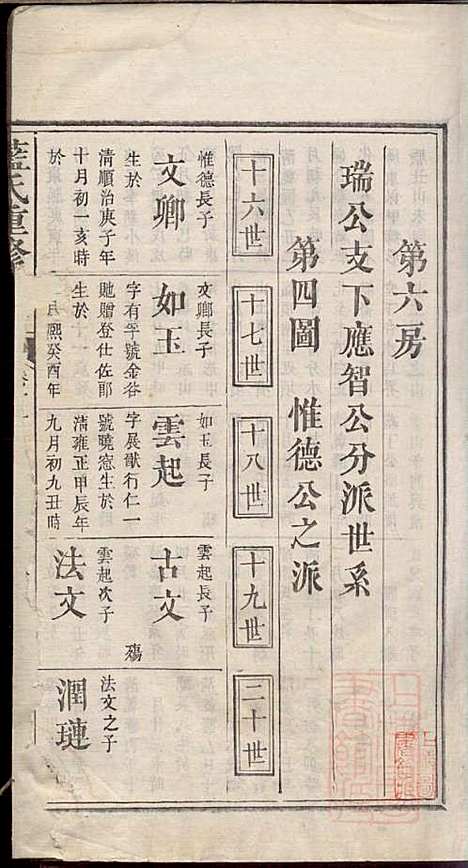 第六房
瑞公支下應智公分派世系
第四圖　惟德公之派
十六世
十七世
十八世
十九世
二十世
惟德長子
文卿
生於
清順治庚子年
十月初一亥時
於
文卿長子
如玉
字有孚號金谷
貤贈登仕佐郎
生於
熙癸酉年
如玉長子
雲起
字展猷行仁一
號曉窓生於
清雍正甲辰年
九月初九丑時
雲起長子
古文
殤
雲起次子
法文
法文之子
潤璉
藍氏重修